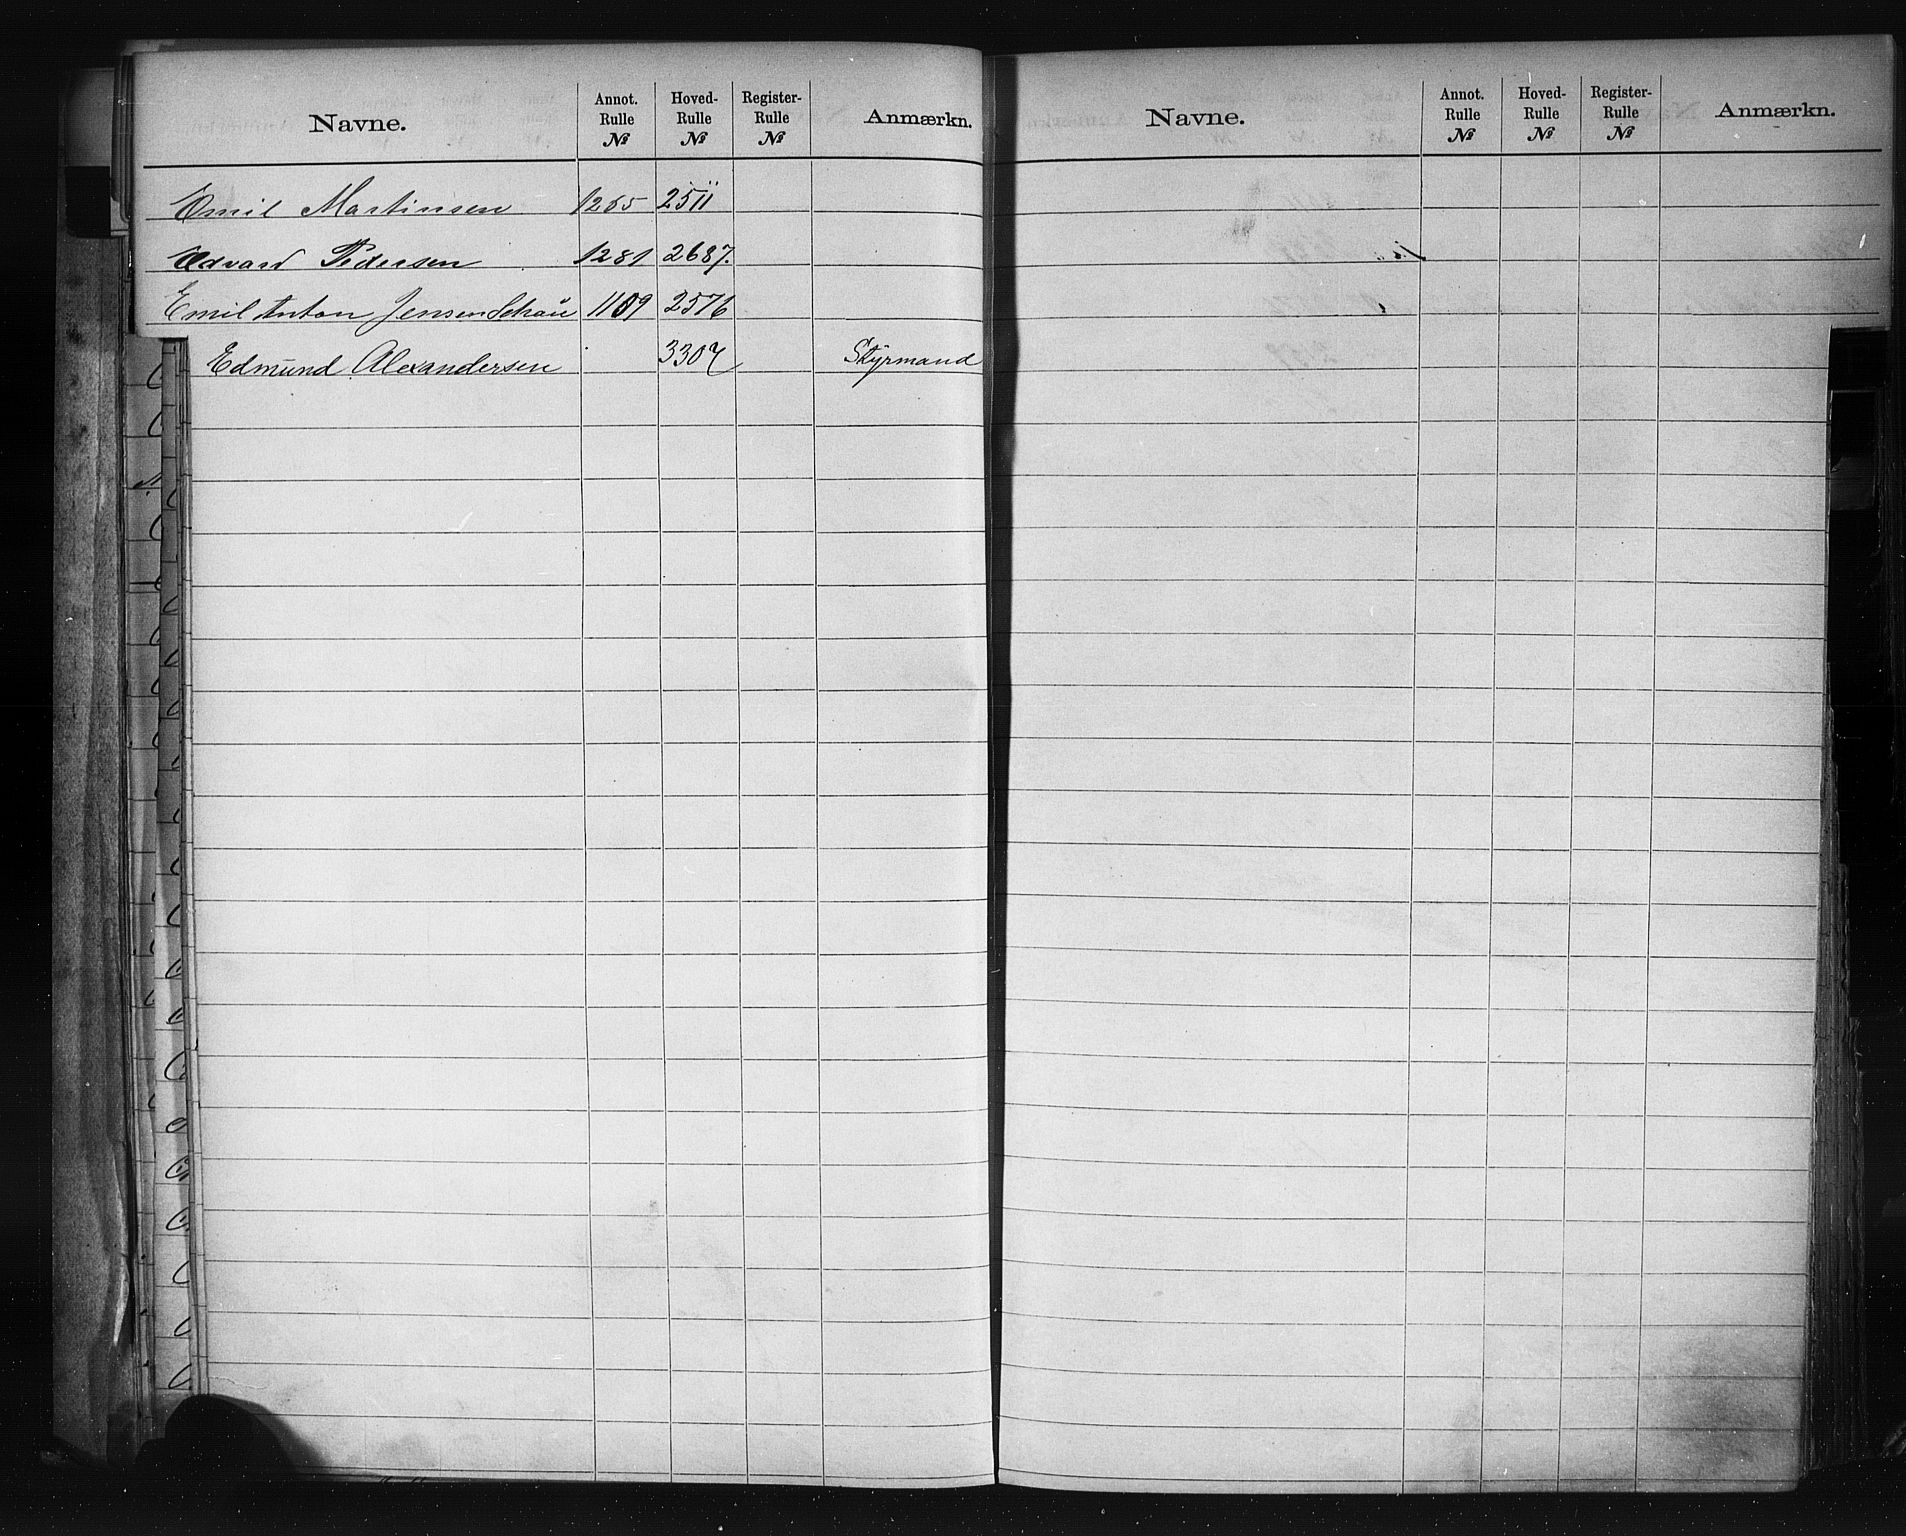 Navne. Annot. Rulle № Hoved- Rulle № Register- Rulle № Anmærkn.
Emil Martinsen 1265 2511
Edvard Pedersen 1281 2687.
Emil Anton Jensen Schau 1109 2576
Edmund Alexandersen 3307 Styrmand
Navne. Annot. Rulle № Hoved- Rulle № Register- Rulle № Anmærkn.